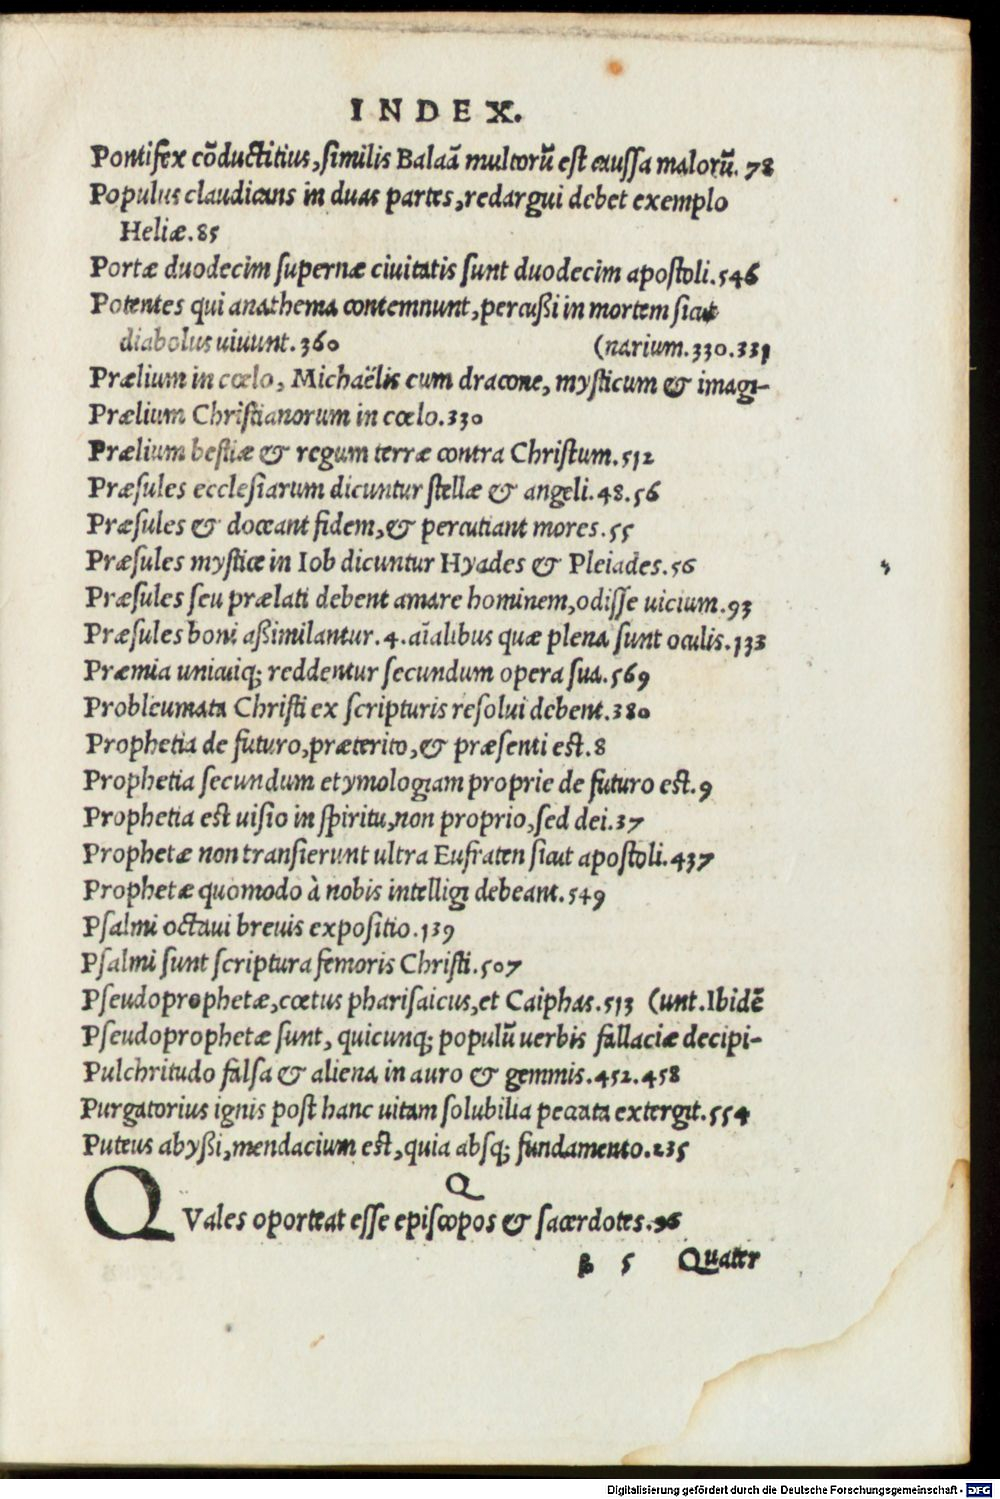 INDEX.
Pontifex cōductitius, similis Balaā multorū est caussa malorū. 78
Populus claudicans in duas partes, redargui debet exemplo
Heliæ. 85
Portæ duodecim supernæ ciuitatis sunt duodecim apostoli. 546
Potentes qui anathema contemnunt, percußi in mortem sicut
diabolus uiuunt. 360 (narium. 330. 331
Prælium in cœlo, Michaëlis cum dracone, mysticum & imagi-
Prælium Christianorum in cœlo. 330
Prælium bestiæ & regum terræ contra Christum. 512
Præsules ecclesiarum dicuntur stellæ & angeli. 48. 56
Præsules & doceant fidem, & percutiant mores. 55
Præsules mystice in Iob dicuntur Hyades & Pleiades. 56
Præsules seu prælati debent amare hominem, odisse uicium. 93
Præsules boni aßimilantur. 4. aīalibus quæ plena sunt oculis. 133
Præmia unicuiq; reddentur secundum opera sua. 569
Probleumata Christi ex scripturis resolui debent. 380
Prophetia de futuro, præterito, & præsenti est. 8
Prophetia secundum etymologiam proprie de futuro est. 9
Prophetia est uisio in spiritu, non proprio, sed dei. 37
Prophetæ non transierunt ultra Eufraten sicut apostoli. 437
Prophetæ quomodo à nobis intelligi debeant. 549
Psalmi octaui breuis expositio. 139
Psalmi sunt scriptura femoris Christi. 507
Pseudoprophetæ, cœtus pharisaicus, et Caiphas. 513 (unt. Ibidē
Pseudoprophetæ sunt, quicunq; populū uerbis fallaciæ decipi-
Pulchritudo falsa & aliena in auro & gemmis. 452. 458
Purgatorius ignis post hanc uitam solubilia peccata extergit. 554
Puteus abyßi, mendacium est, quia absq; fundamento. 235
Q
QVales oporteat esse episcopos & sacerdotes. 96
B 5 Quater
Digitalisierung gefördert durch die Deutsche Forschungsgemeinschaft - DFG